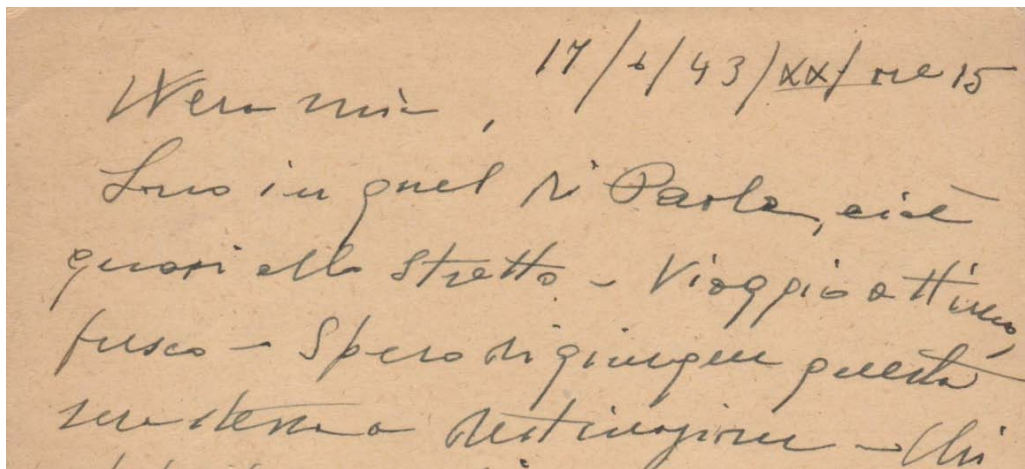 17/6/43/XXI ore 15
Wera mia,
Sono in quel di Paola, cioè
quasi allo stretto - Viaggio ottimo,
fresco - Spero di giungere questa
sera stessa a destinazione - Chi